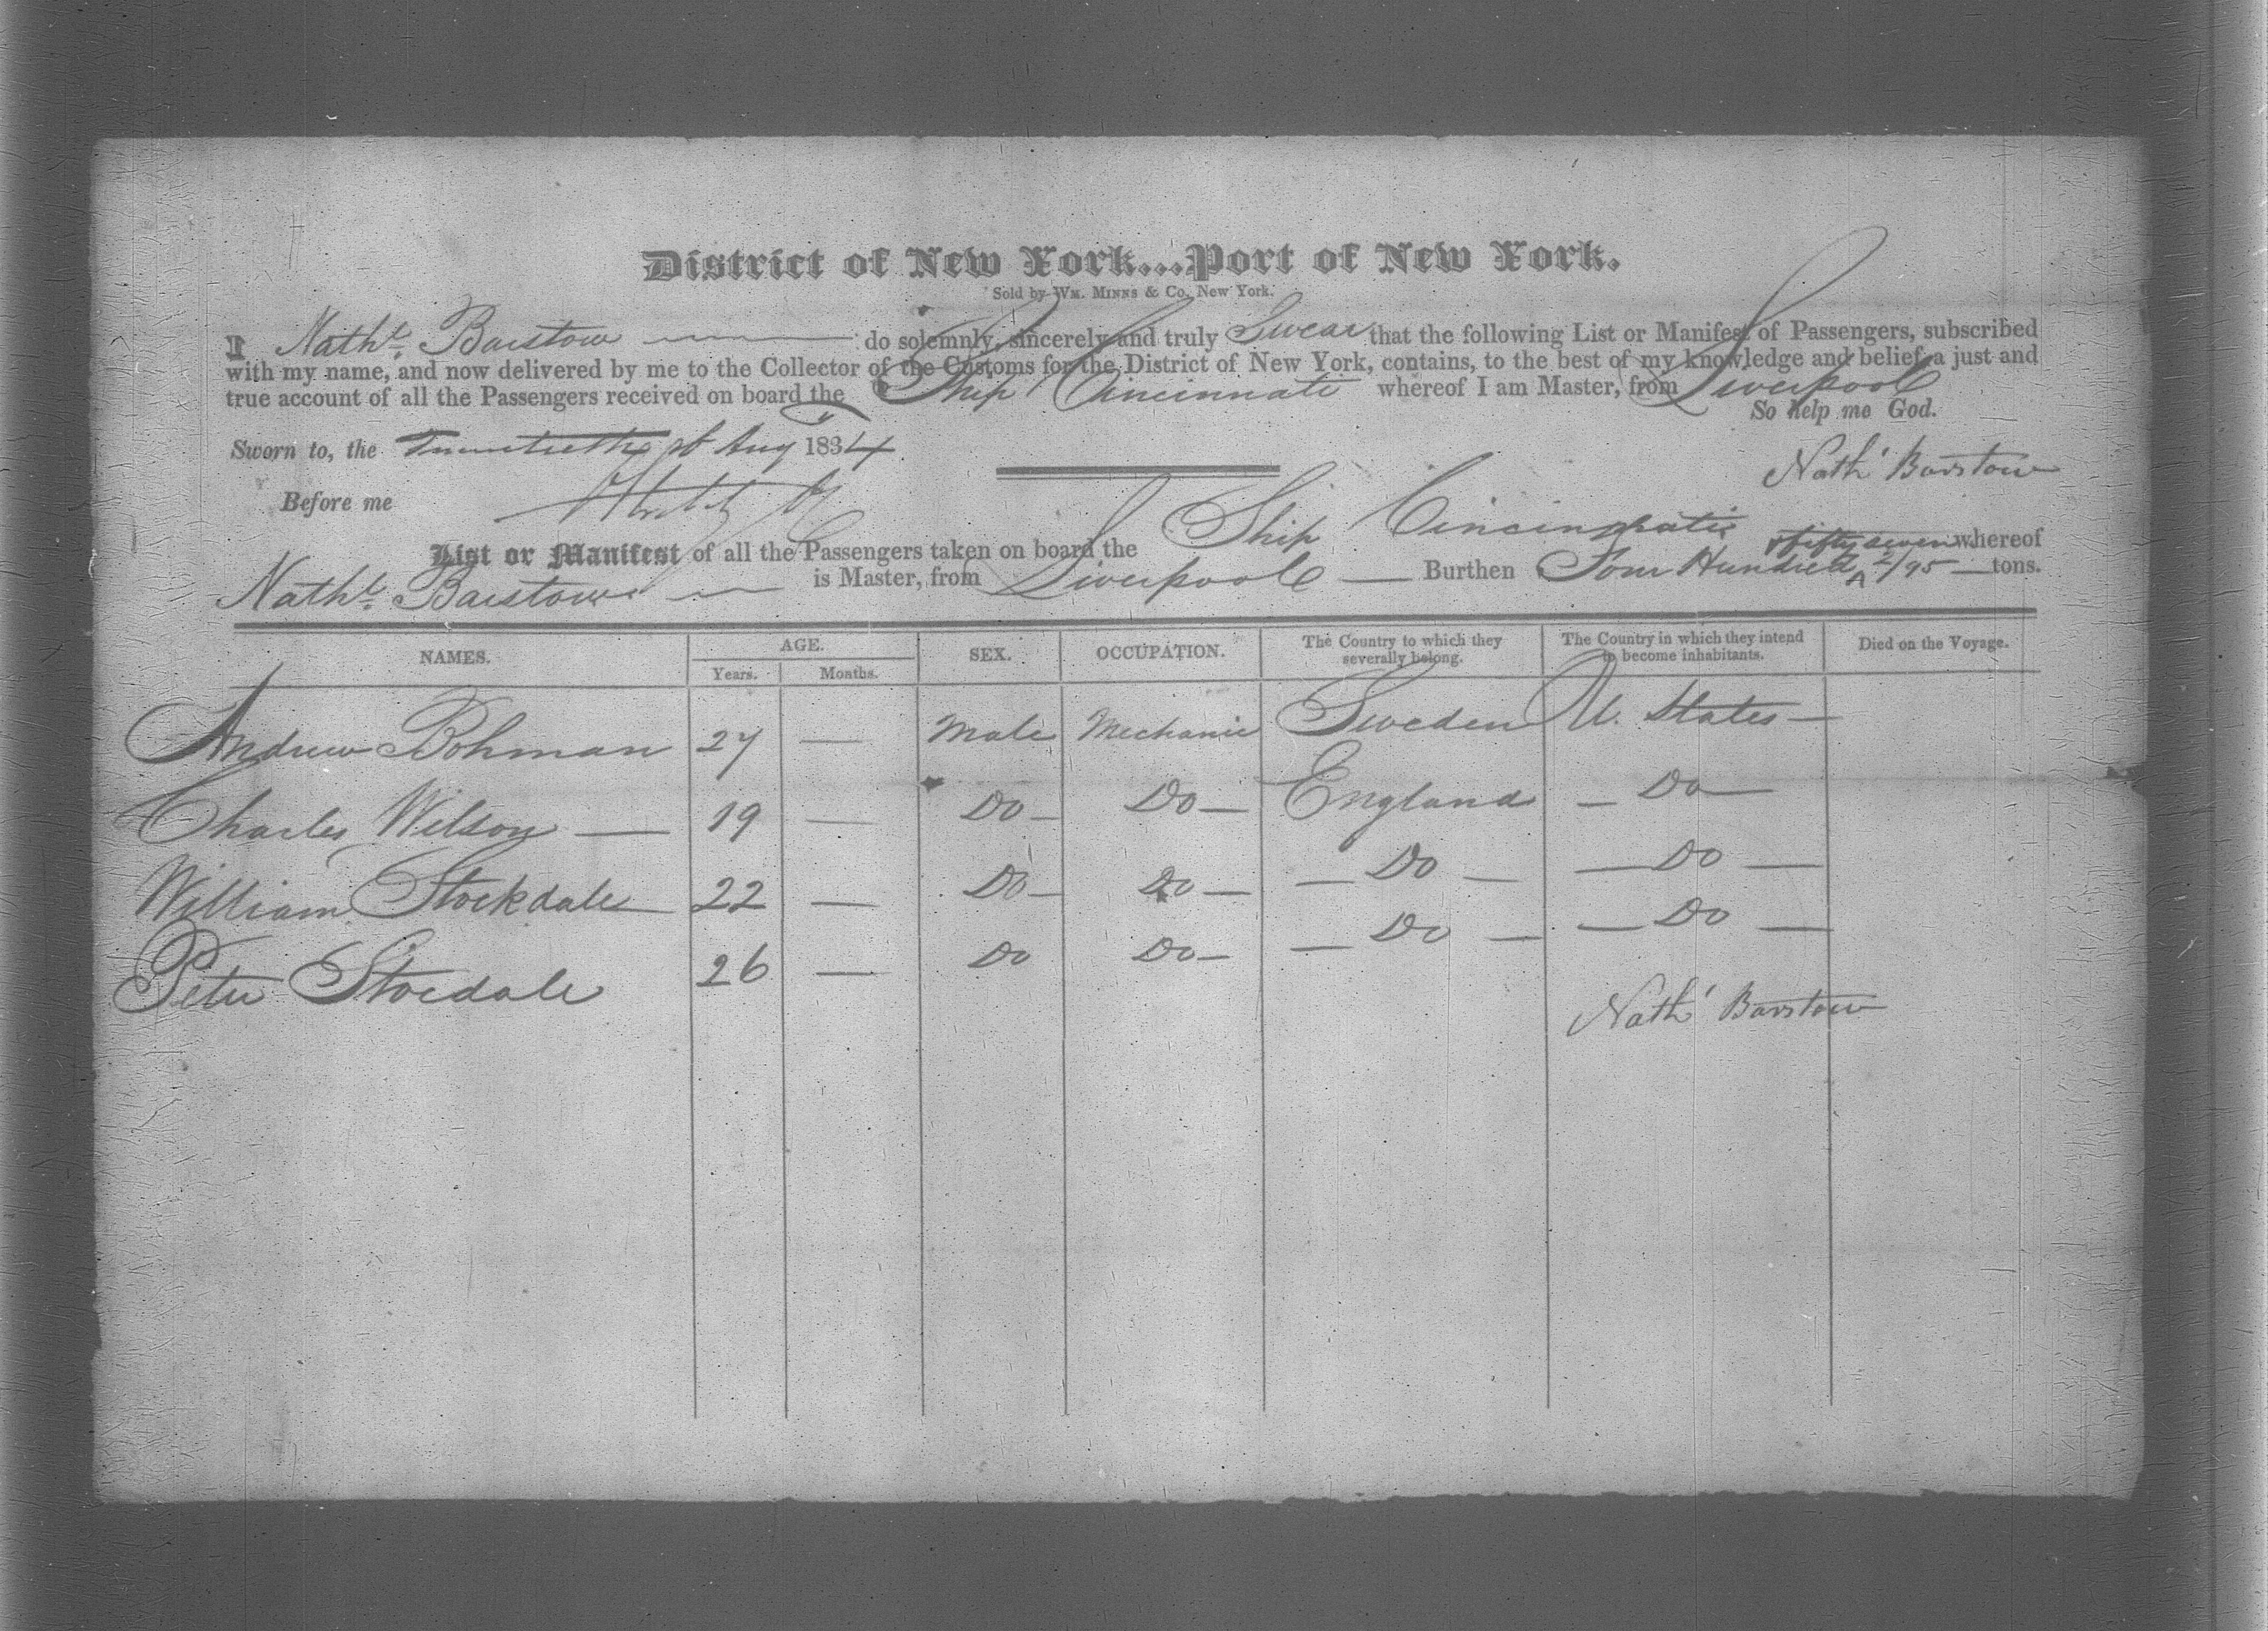 District of New York...Port of New York.
Sold by WM. MINNS & Co. New York.
I Nathl. Barstow do solemnly, sincerely and truly Swear that the following List or Manifest of Passengers, subscribed
with my name, and now delivered by me to the Collector of the Customs for the District of New York, contains, to the best of my knowledge and belief, a just and
true account of all the Passengers received on board the Ship Cincinnati whereof I am Master, from Liverpool
So help me God.
Sworn to, the Twentieth of Aug 1834
Nathl Barstow
Before me
List or Manifest of all the Passengers taken on board the Ship Cincinnati whereof
fifty seven
Nathl. Barstow is Master, from Liverpool Burthen Four Hundred /95 tons.
NAMES. AGE. SEX. OCCUPATION. The Country to which they severally belong. The Country in which they intend to become inhabitants. Died on the Voyage.
Years. Months.
Andrew Bohman 27 — Male Mechanic Sweden U. States —
Charles Wilson — 19 — Do — Do — England — Do —
William Stockdale 22 — Do — Do — — Do — — Do —
Peter Stocdale 26 — Do Do — — Do — — Do —
Nathl Barstow